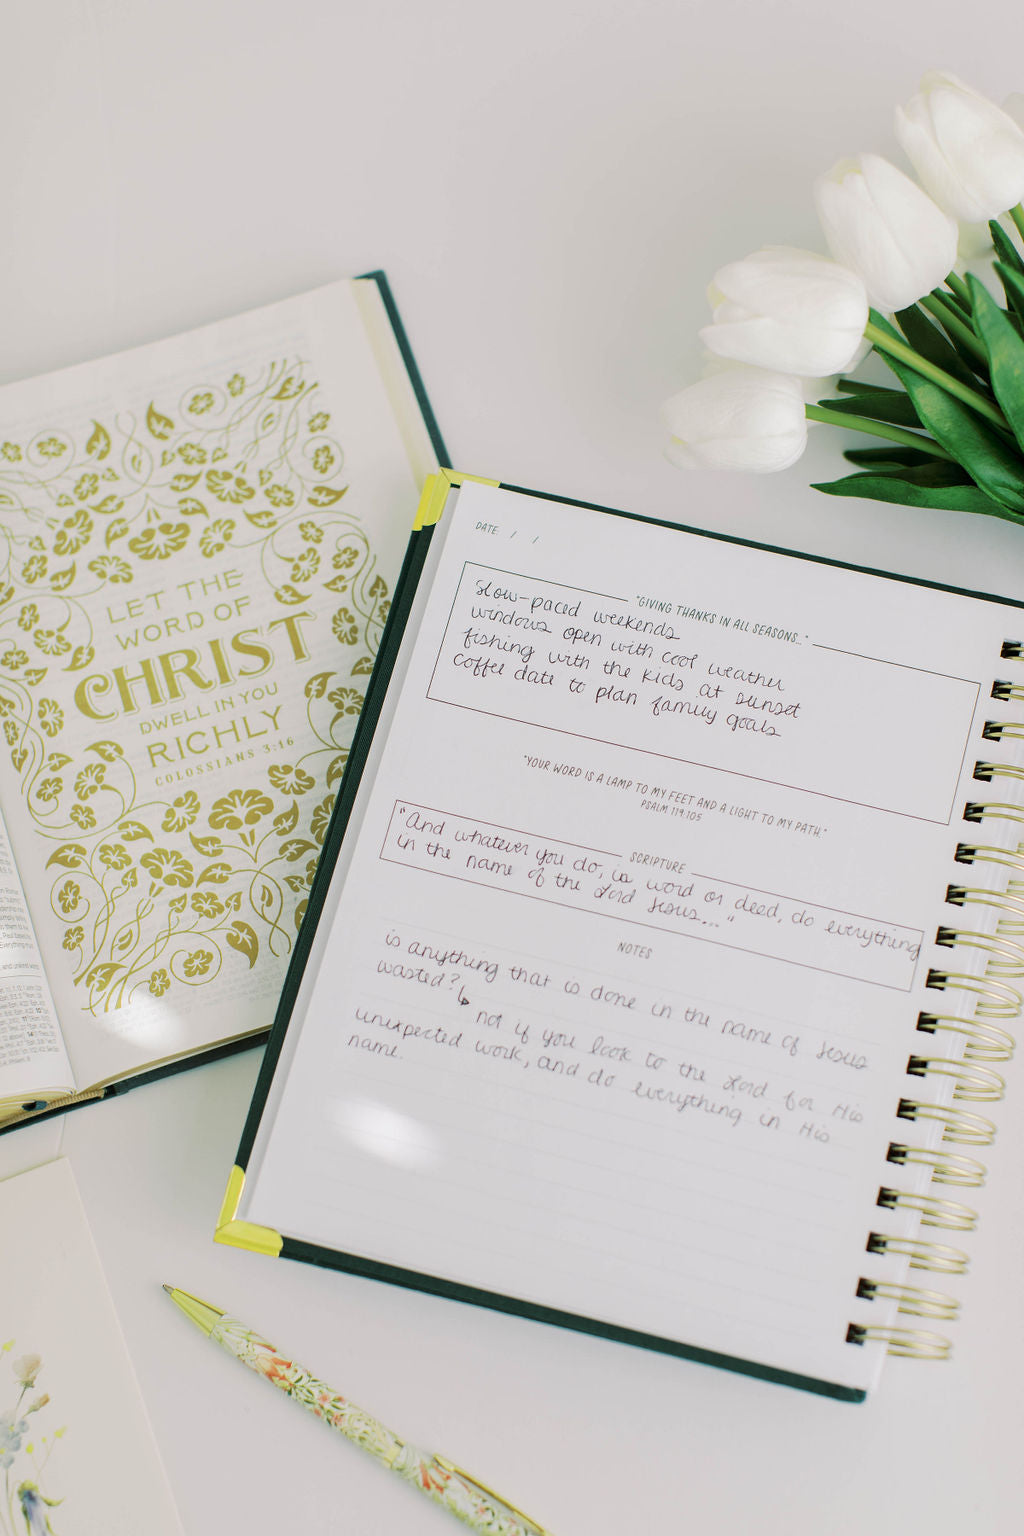 LET THE
WORD OF
CHRIST
DWELL IN YOU
RICHLY
COLOSSIANS 3:16
DATE: / /
"GIVING THANKS IN ALL SEASONS..."
Slow-paced weekends
windows open with cool weather
fishing with the kids at sunset
coffee date to plan family goals
"YOUR WORD IS A LAMP TO MY FEET AND A LIGHT TO MY PATH."
PSALM 119:105
SCRIPTURE
"And whatever you do, in word or deed, do everything
in the name of the Lord Jesus..."
NOTES
is anything that is done in the name of Jesus
wasted?
not if you look to the Lord for His
unexpected work, and do everything in His
name.